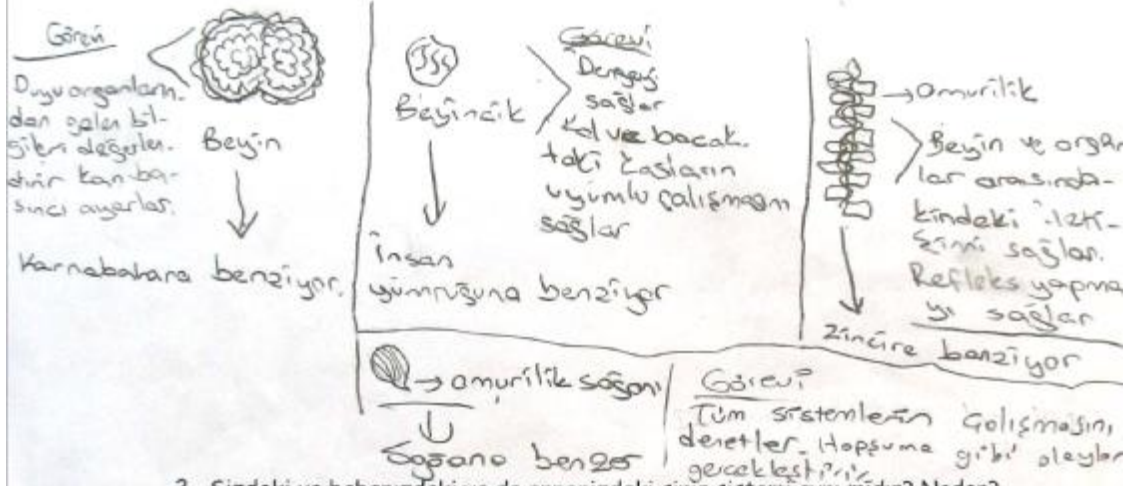 Görevi
Duyu organların-
dan gelen bil-
gileri değerlen-
dirir kan ba-
sıncı ayarlar.
Beyin
Karnabahara benziyor.
Beyincik
Görevi
Dengeyi
sağlar
kol ve bacak-
taki kasların
uyumlu çalışmasını
sağlar
İnsan
yumruğuna benziyor
omurilik
Beyin ve organ
lar arasında-
kindeki ileti-
şimi sağlar.
Refleks yapma
yı sağlar
Zincire benziyor
omurilik soğanı
Soğana benzer
Görevi
Tüm sistemlerin çalışmasını,
denetler. Hapşırma gibi olayları
gerçekleştirir